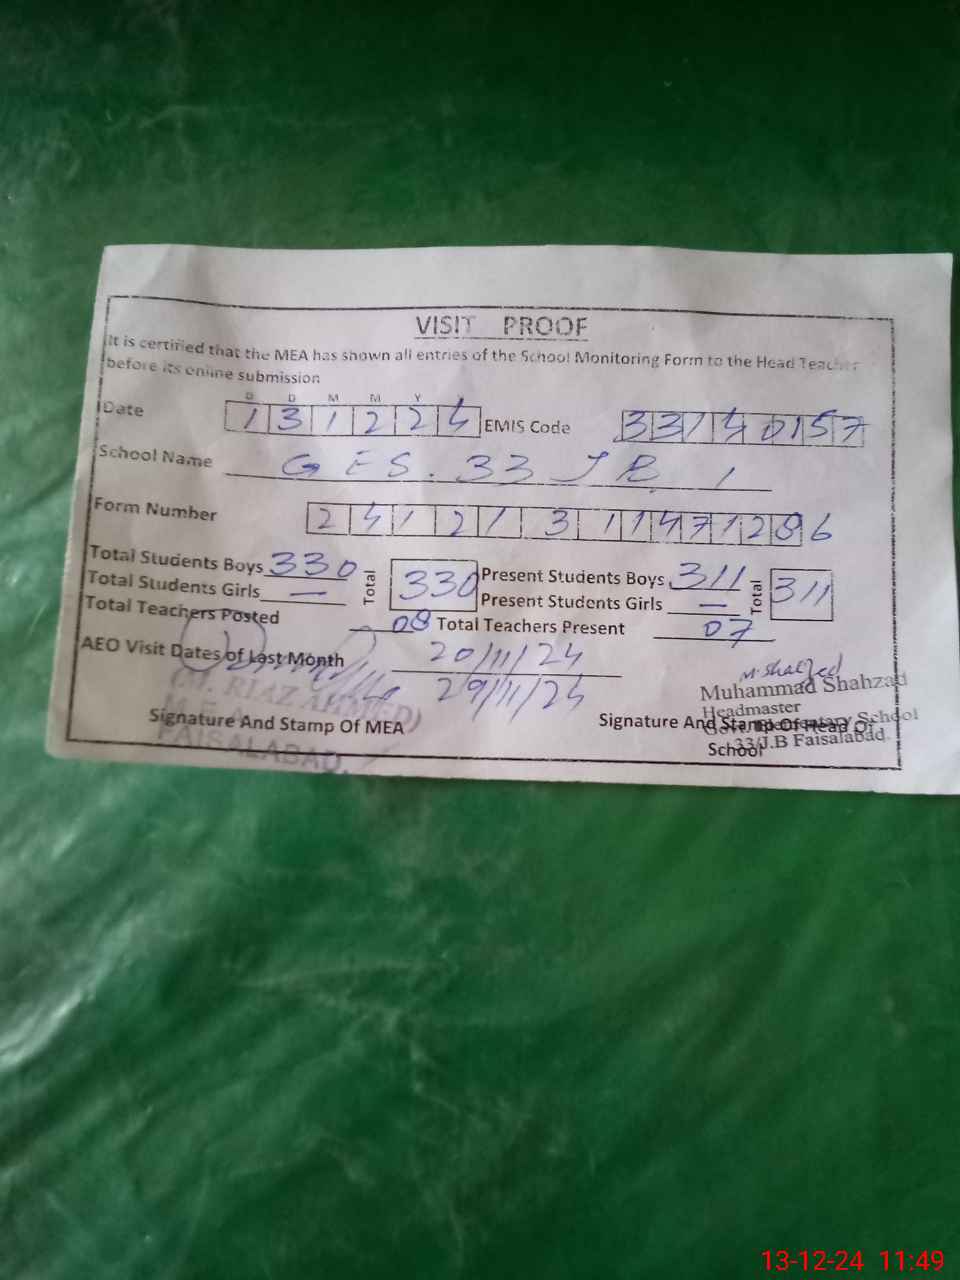 VISIT PROOF
It is certified that the MEA has shown all entries of the School Monitoring Form to the Head Teacher
before its online submission
D D M M Y
Date 1 3 1 2 2 4 EMIS Code 33140157
School Name GES. 33 JB
Form Number 2 4 1 2 1 3 1 1 4 7 1 2 8 6
Total Students Boys 330 Total 330 Present Students Boys 311 Total 311
Total Students Girls — Present Students Girls —
Total Teachers Posted 08 Total Teachers Present 07
AEO Visit Dates of Last Month 20/11/24
29/11/24
M. Shahzad
(M. RIAZ AHMED)
M.E.A
FAISALABAD.
Signature And Stamp Of MEA
Muhammad Shahzad
Headmaster
Govt. Elementary School
33/J.B Faisalabad.
Signature And Stamp Of Head Of
School
13-12-24 11:49